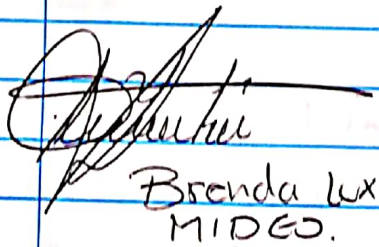 Brenda Lux
MIDEO.